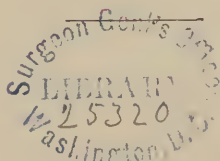 Surgeon Genl's Office
LIBRARY
25320
Washington, D.C.